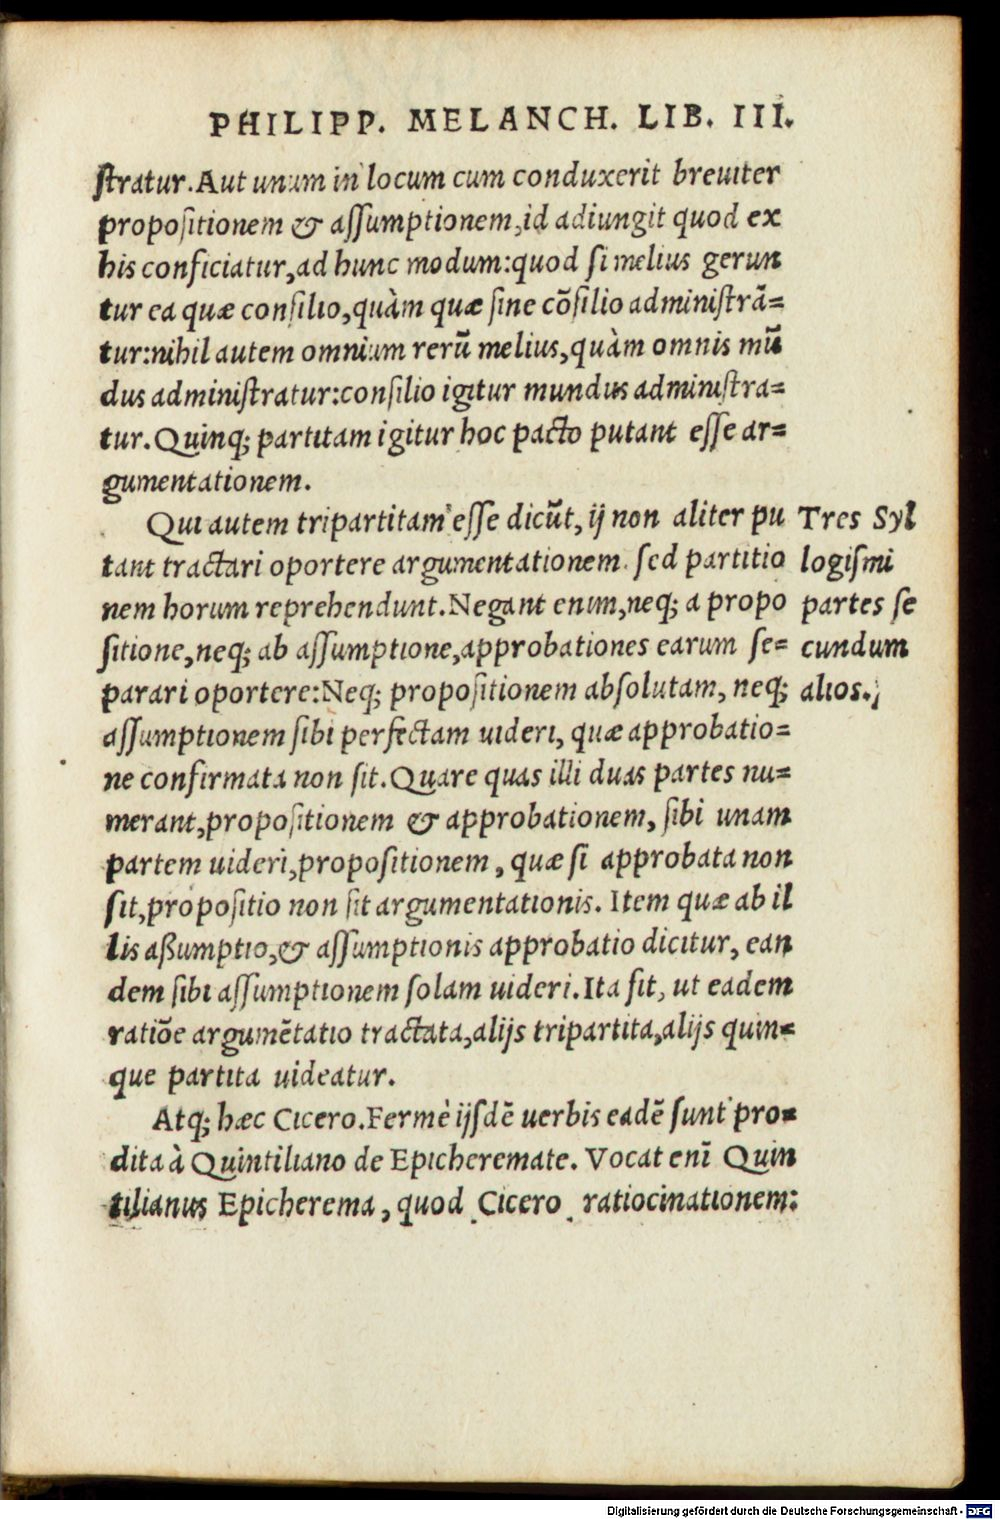 PHILIPP. MELANCH. LIB. III.
ſtratur. Aut unum in locum cum conduxerit breuiter
propoſitionem & aſſumptionem, id adiungit quod ex
his conficiatur, ad hunc modum: quod ſi melius gerun
tur ea quæ conſilio, quàm quæ ſine cõſilio adminiſtrã=
tur: nihil autem omnium rerũ melius, quàm omnis mũ
dus adminiſtratur: conſilio igitur mundus adminiſtra=
tur. Quinq; partitam igitur hoc pacto putant eſſe ar=
gumentationem.
Qui autem tripartitam eſſe dicũt, ij non aliter pu
tant tractari oportere argumentationem. ſed partitio
nem horum reprehendunt. Negant enim, neq; a propo
ſitione, neq; ab aſſumptione, approbationes earum ſe=
parari oportere: Neq; propoſitionem abſolutam, neq;
aſſumptionem ſibi perfectam uideri, quæ approbatio=
ne confirmata non ſit. Quare quas illi duas partes nu=
merant, propoſitionem & approbationem, ſibi unam
partem uideri, propoſitionem, quæ ſi approbata non
ſit, propoſitio non ſit argumentationis. Item quæ ab il
lis aßumptio, & aſſumptionis approbatio dicitur, ean
dem ſibi aſſumptionem ſolam uideri. Ita fit, ut eadem
ratiõe argumẽtatio tractata, alijs tripartita, alijs quin=
que partita uideatur.
Atq; hæc Cicero. Fermè ijſdẽ uerbis eadẽ ſunt pro=
dita à Quintiliano de Epicheremate. Vocat enĩ Quin
tilianus Epicherema, quod Cicero ratiocinationem:
Tres Syl
logiſmi
partes ſe
cundum
alios.
Digitalisierung gefördert durch die Deutsche Forschungsgemeinschaft - DFG